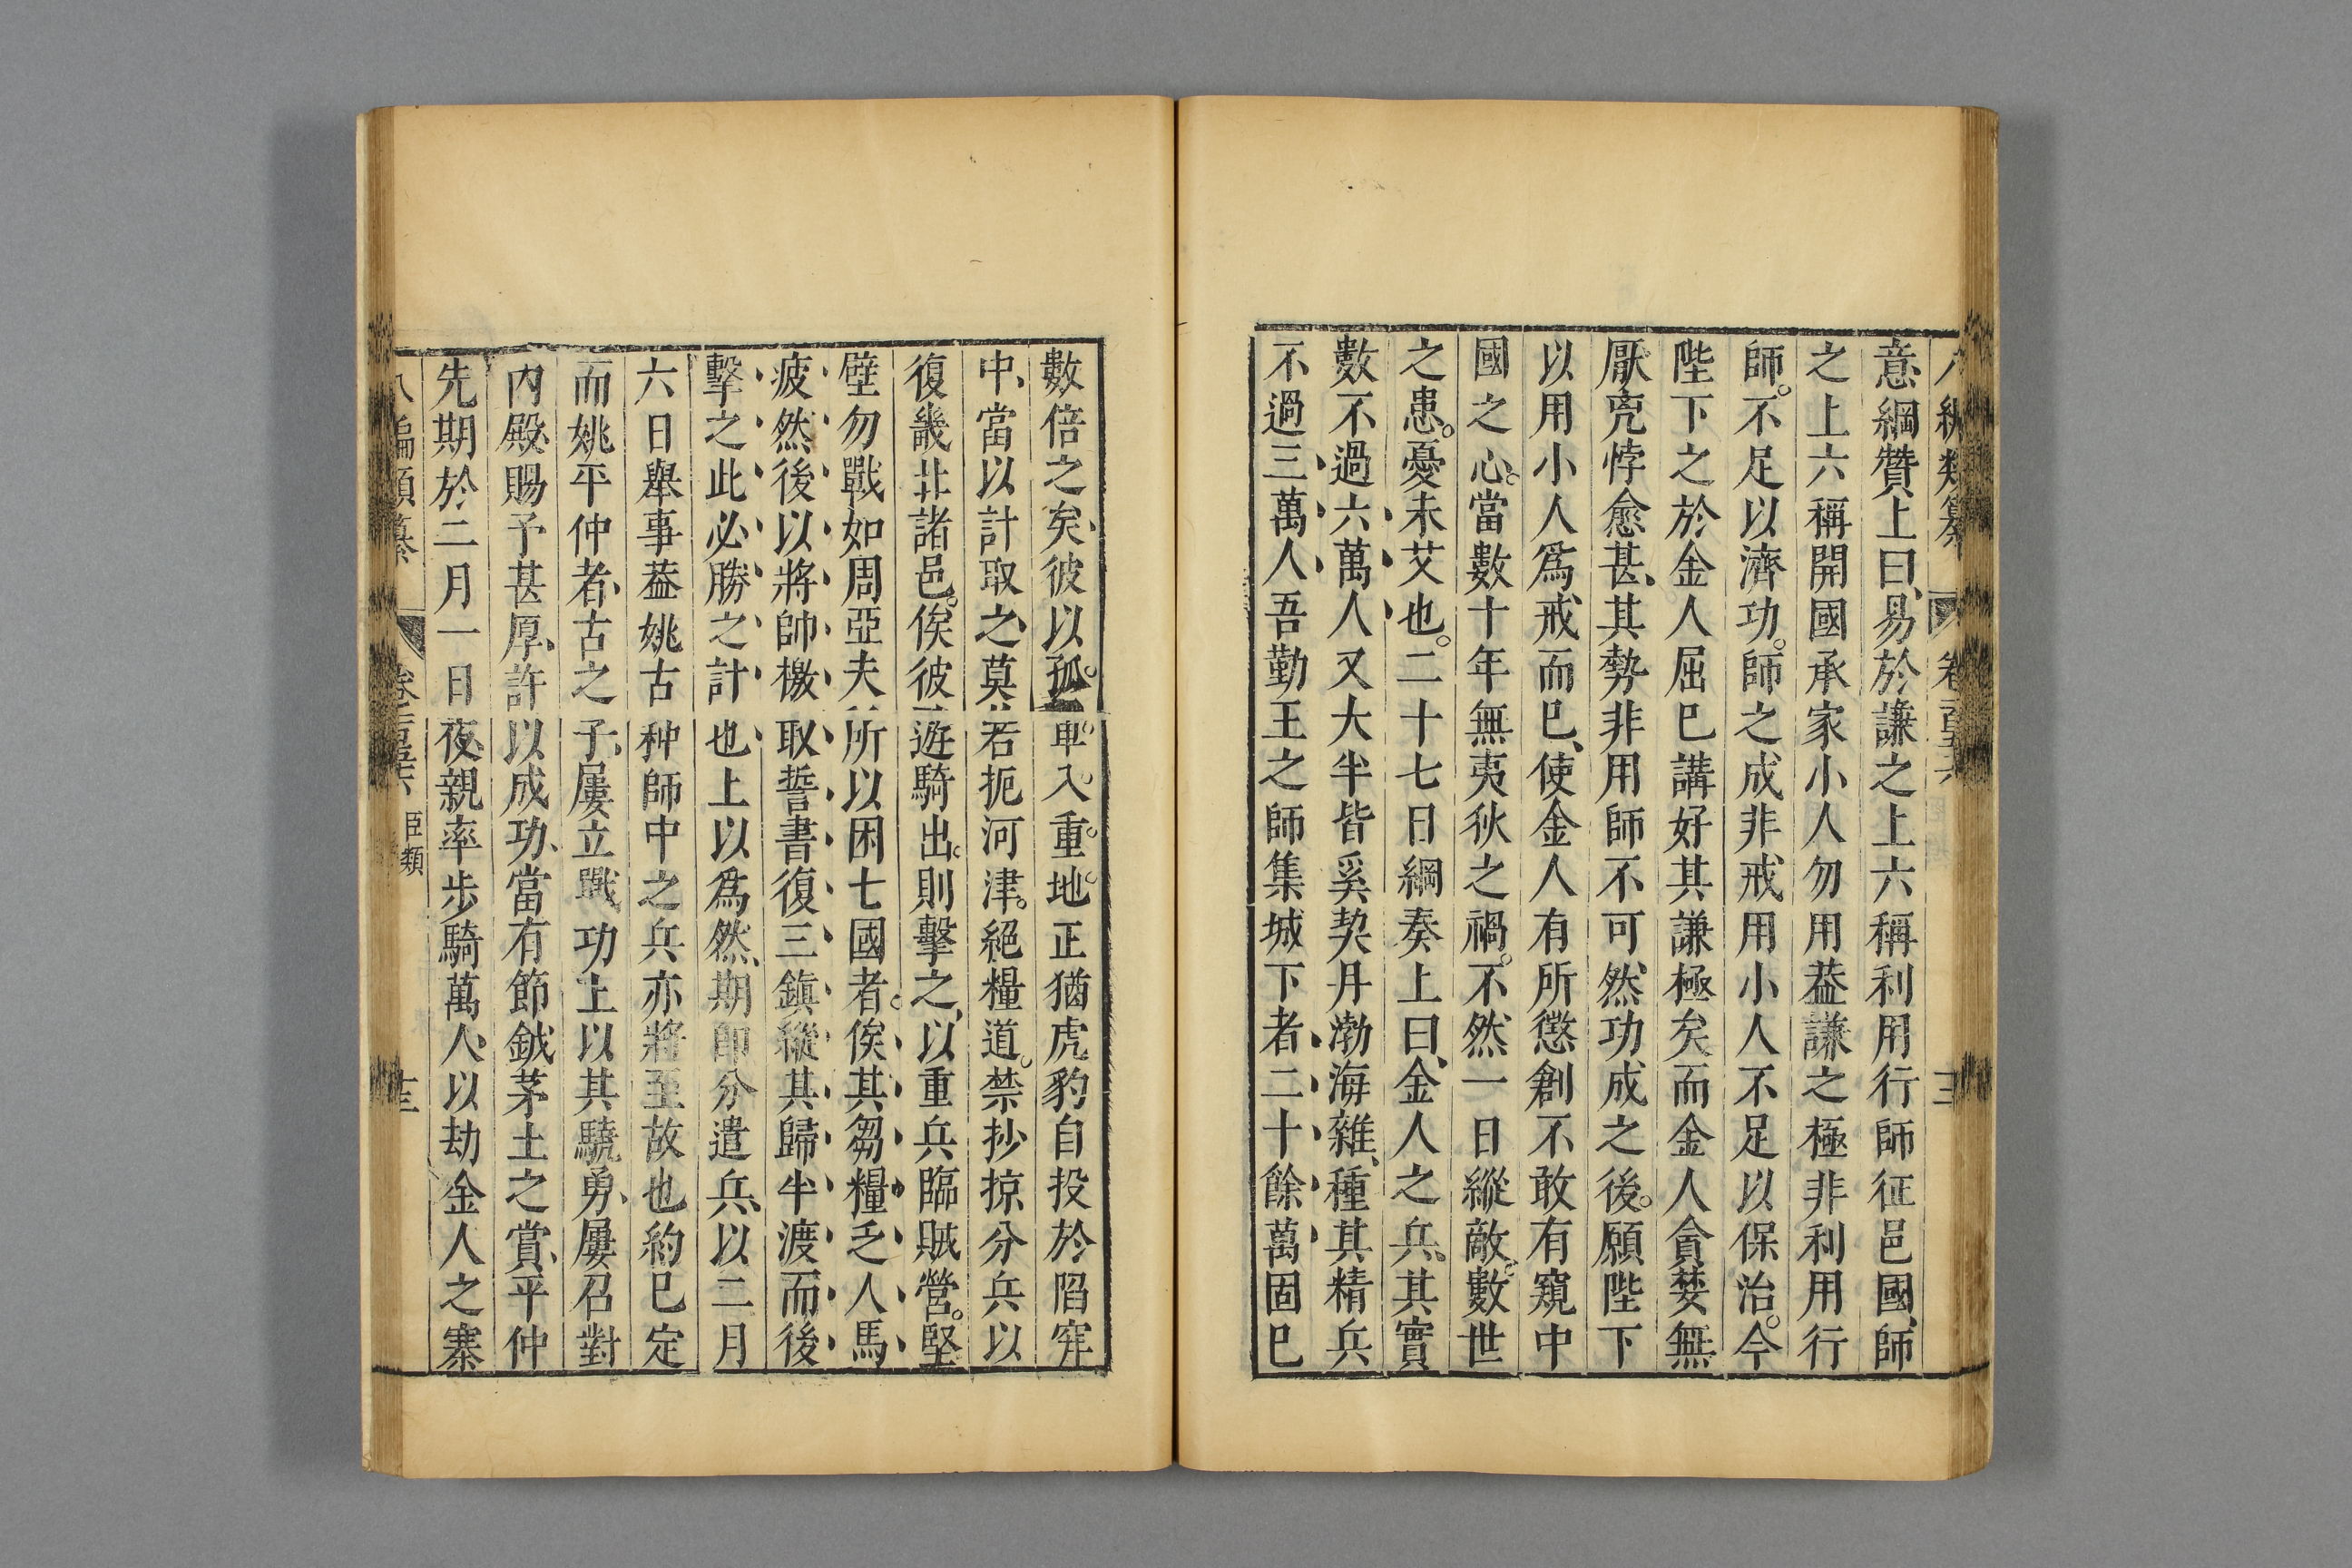 意綱贊上曰、易於謙之上六稱利用行師征邑國、師
之上六稱開國承家小人勿用葢謙之極非利用行
師。不足以濟功。師之成非戒用小人不足以保治。今
陛下之於金人屈巳講好其謙極矣而金人貪婪無
厭兇悖愈甚、其勢非用師不可然功成之後。願陛下
以用小人爲戒而巳、使金人有所懲創不敢有窺中
國之心。當數十年無夷狄之禍。不然一日縱敵。數世
之患。憂未艾也。二十七日綱奏上曰、金人之兵、其實
數不過六萬人又大半皆奚契丹渤海雜種其精兵
不過三萬人吾勤王之師集城下者二十餘萬固巳
數倍之矣彼以孤軍入重地正猶虎豹自投於陷穽
中、當以計取之、莫若扼河津。絕糧道。禁抄掠分兵以
復畿北諸邑。俟彼遊騎出。則擊之、以重兵臨賊營。堅
壁勿戰如周亞夫所以困七國者。俟其芻糧乏人馬
疲然後以將帥檄取誓書復三鎮縱其歸半渡而後
擊之此必勝之計也上以爲然、期即分遣兵、以二月
六日舉事葢姚古种師中之兵亦將至故也約巳定
而姚平仲者、古之子、屢立戰功上以其驍勇、屢召對
内殿賜予甚厚、許以成功、當有節鉞茅土之賞、平仲
先期於二月一日夜、親率步騎萬人、以劫金人之寨
八編類纂 卷一百三六 臣類 十三